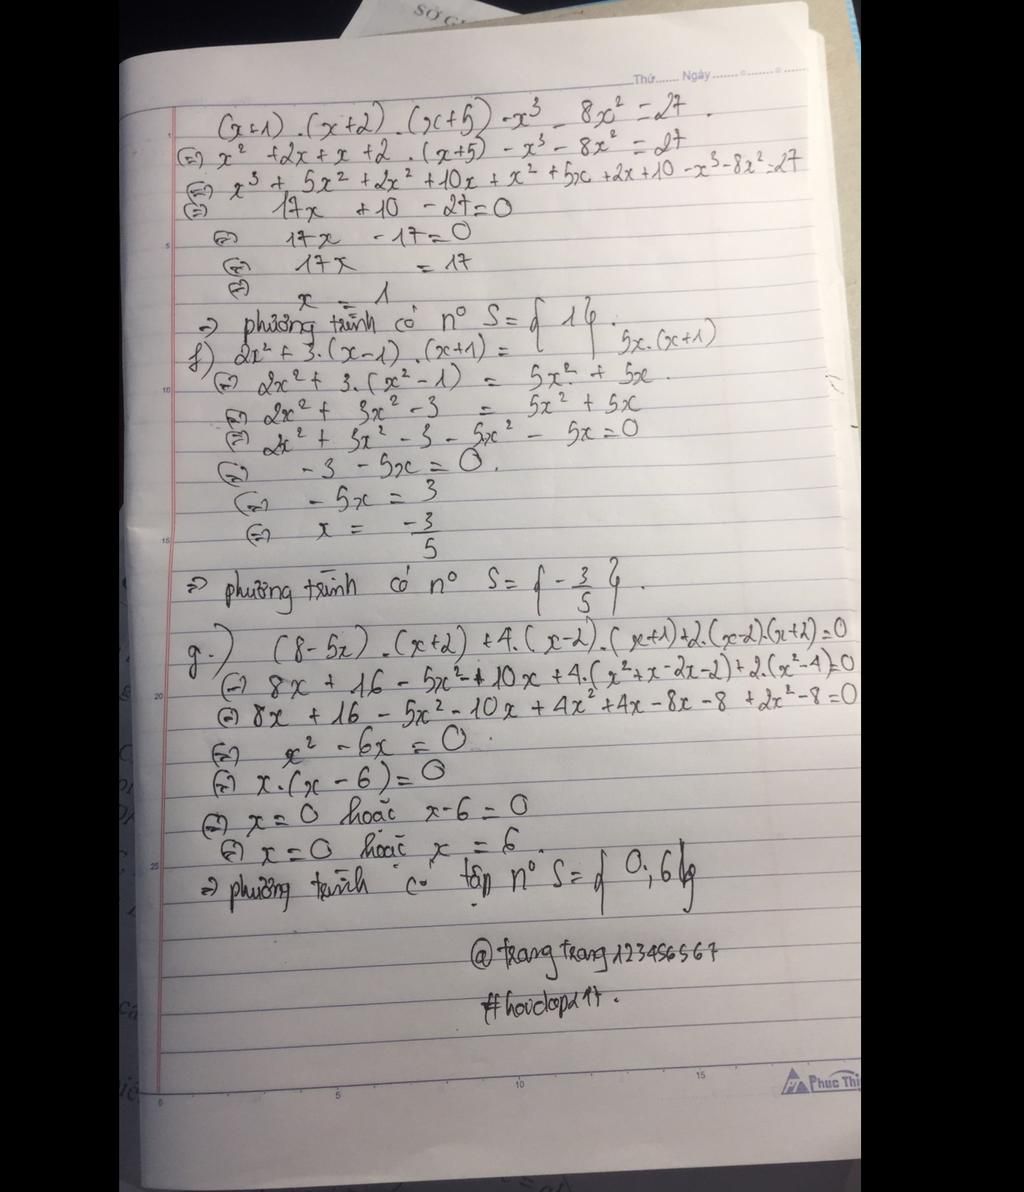 SỞ G
Thứ....... Ngày .......o.......o......
(x+1) . (x+2) . (x+5) - x³ - 8x² = 27 .
(=) x² + 2x + x + 2 . (x+5) - x³ - 8x² = 27
(=) x³ + 5x² + 2x² + 10x + x² + 5x + 2x + 10 - x³ - 8x² = 27
(=) 17x + 10 - 27 = 0
(=) 17x - 17 = 0
(=) 17x = 17
(=) x = 1
=> phương trình có n⁰ S = { 1 } .
f) 2x² + 3.(x-1) . (x+1) = 5x.(x+1)
(=) 2x² + 3.(x² - 1) = 5x² + 5x .
(=) 2x² + 3x² - 3 = 5x² + 5x
(=) 2x² + 3x² - 3 - 5x² - 5x = 0
(=) - 3 - 5x = 0 .
(=) - 5x = 3
(=) x = -3/5
=> phương trình có n⁰ S = { - 3/5 } .
g.) (8 - 5x) . (x+2) + 4.(x-2).(x+1) + 2.(x-2).(x+2) = 0
(=) 8x + 16 - 5x² - 10x + 4.(x² + x - 2x - 2) + 2.(x² - 4) = 0
(=) 8x + 16 - 5x² - 10x + 4x² + 4x - 8x - 8 + 2x² - 8 = 0
(=) x² - 6x = 0 .
(=) x.(x - 6) = 0
(=) x = 0 hoặc x - 6 = 0
(=) x = 0 hoặc x = 6 .
=> phương trình có tập n⁰ S = { 0 ; 6 }
@trangtrang123456567
5
10
15
20
25
0
5
10
15
Phuc Thi